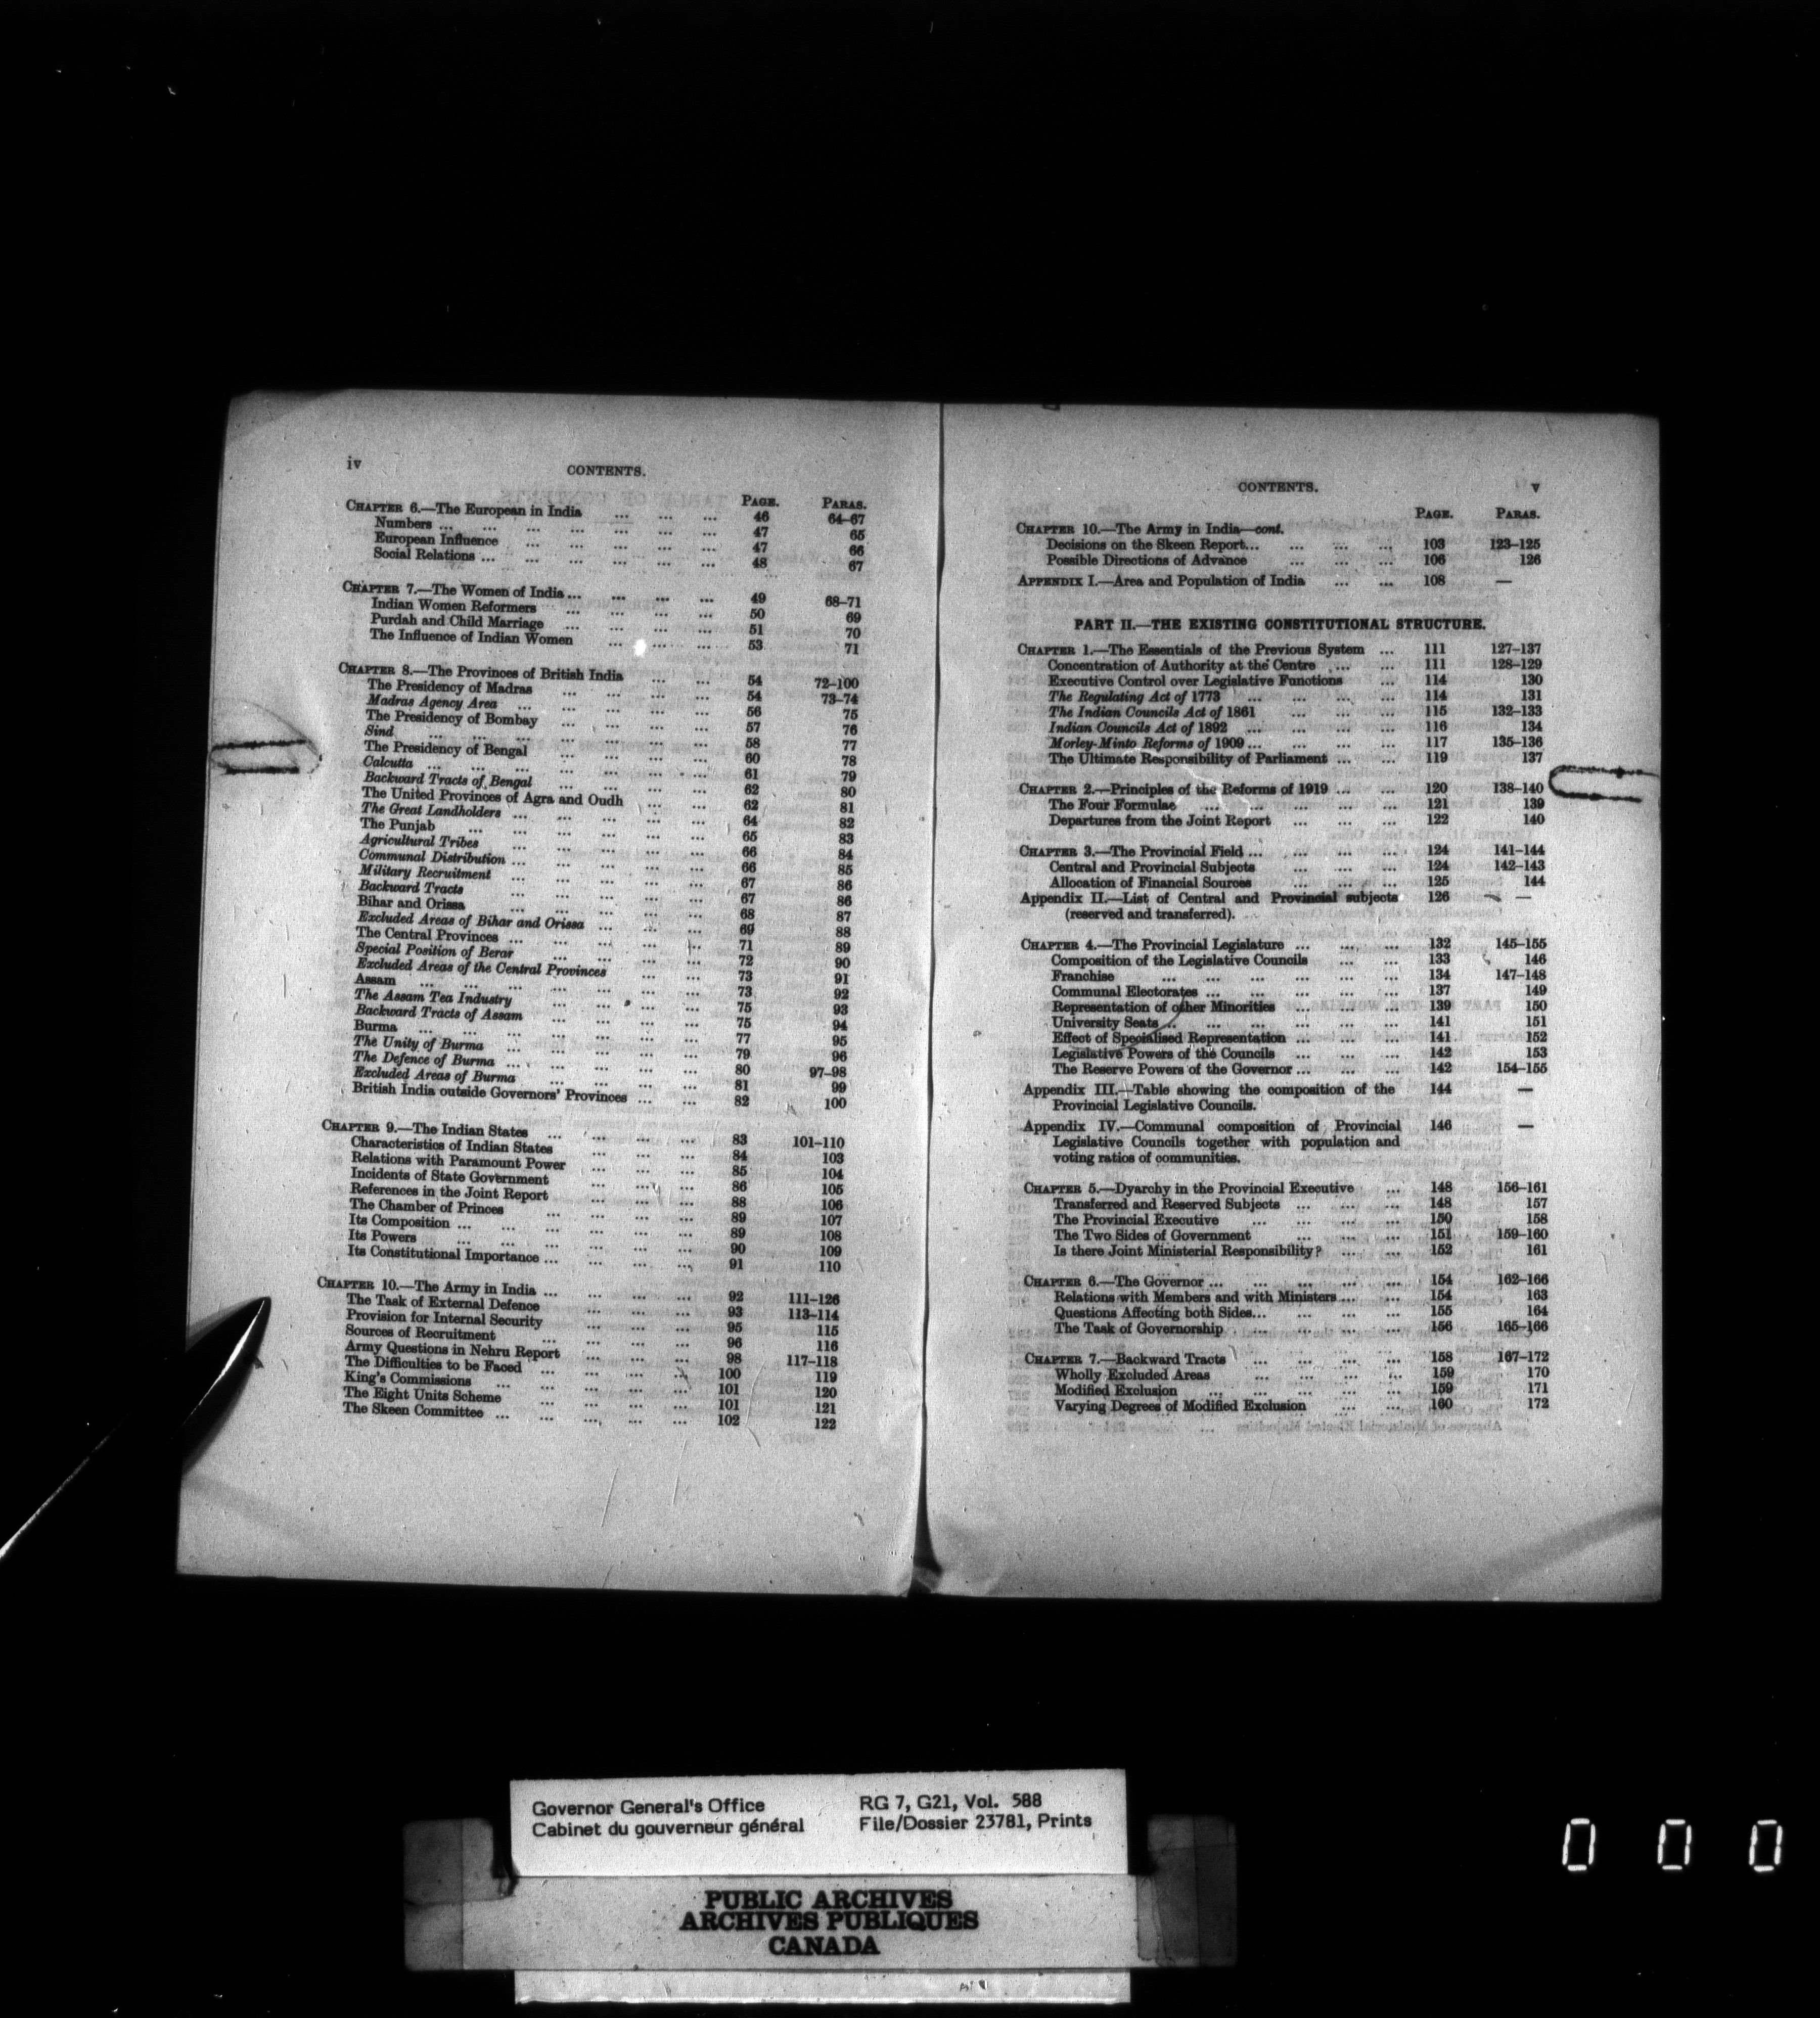 iv
CONTENTS.
PAGE. PARAS.
CHAPTER 6.—The European in India ... ... ... 46 64–67
Numbers ... ... ... ... ... ... ... 47 65
European Influence ... ... ... ... ... 47 66
Social Relations ... ... ... ... ... ... 48 67
CHAPTER 7.—The Women of India ... ... ... ... 49 68–71
Indian Women Reformers ... ... ... ... 50 69
Purdah and Child Marriage ... ... ... ... 51 70
The Influence of Indian Women ... ... ... 53 71
CHAPTER 8.—The Provinces of British India ... ... 54 72–100
The Presidency of Madras ... ... ... ... 54 73–74
Madras Agency Area ... ... ... ... ... 56 75
The Presidency of Bombay ... ... ... ... 57 76
Sind ... ... ... ... ... ... ... 58 77
The Presidency of Bengal ... ... ... ... 60 78
Calcutta ... ... ... ... ... ... ... 61 79
Backward Tracts of Bengal ... ... ... ... 62 80
The United Provinces of Agra and Oudh ... ... 62 81
The Great Landholders ... ... ... ... ... 64 82
The Punjab ... ... ... ... ... ... 65 83
Agricultural Tribes ... ... ... ... ... 66 84
Communal Distribution ... ... ... ... ... 66 85
Military Recruitment ... ... ... ... ... 67 86
Backward Tracts ... ... ... ... ... 67 86
Bihar and Orissa ... ... ... ... ... 68 87
Excluded Areas of Bihar and Orissa ... ... ... 69 88
The Central Provinces ... ... ... ... ... 71 89
Special Position of Berar ... ... ... ... 72 90
Excluded Areas of the Central Provinces ... ... 73 91
Assam ... ... ... ... ... ... ... 73 92
The Assam Tea Industry ... ... ... ... 75 93
Backward Tracts of Assam ... ... ... ... 75 94
Burma ... ... ... ... ... ... ... 77 95
The Unity of Burma ... ... ... ... ... 79 96
The Defence of Burma ... ... ... ... ... 80 97–98
Excluded Areas of Burma ... ... ... ... 81 99
British India outside Governors' Provinces ... ... 82 100
CHAPTER 9.—The Indian States ... ... ... ... 83 101–110
Characteristics of Indian States ... ... ... 84 103
Relations with Paramount Power ... ... ... 85 104
Incidents of State Government ... ... ... 86 105
References in the Joint Report ... ... ... 88 106
The Chamber of Princes ... ... ... ... 89 107
Its Composition ... ... ... ... ... ... 89 108
Its Powers ... ... ... ... ... ... 90 109
Its Constitutional Importance ... ... ... ... 91 110
CHAPTER 10.—The Army in India ... ... ... ... 92 111–126
The Task of External Defence ... ... ... 93 113–114
Provision for Internal Security ... ... ... 95 115
Sources of Recruitment ... ... ... ... 96 116
Army Questions in Nehru Report ... ... ... 98 117–118
The Difficulties to be Faced ... ... ... ... 100 119
King's Commissions ... ... ... ... ... 101 120
The Eight Units Scheme ... ... ... ... 101 121
The Skeen Committee ... ... ... ... ... 102 122
CONTENTS. v
PAGE. PARAS.
CHAPTER 10.—The Army in India—cont.
Decisions on the Skeen Report... ... ... ... 103 123–125
Possible Directions of Advance ... ... ... 106 126
APPENDIX I.—Area and Population of India ... ... 108 —
PART II.—THE EXISTING CONSTITUTIONAL STRUCTURE.
CHAPTER 1.—The Essentials of the Previous System ... 111 127–137
Concentration of Authority at the Centre ... ... 111 128–129
Executive Control over Legislative Functions ... 114 130
The Regulating Act of 1773 ... ... ... ... 114 131
The Indian Councils Act of 1861 ... ... ... 115 132–133
Indian Councils Act of 1892 ... ... ... ... 116 134
Morley-Minto Reforms of 1909 ... ... ... ... 117 135–136
The Ultimate Responsibility of Parliament ... ... 119 137
CHAPTER 2.—Principles of the Reforms of 1919 ... ... 120 138–140
The Four Formulae ... ... ... ... ... 121 139
Departures from the Joint Report ... ... ... 122 140
CHAPTER 3.—The Provincial Field ... ... ... ... 124 141–144
Central and Provincial Subjects ... ... ... 124 142–143
Allocation of Financial Sources ... ... ... 125 144
Appendix II.—List of Central and Provincial subjects 126 —
(reserved and transferred).
CHAPTER 4.—The Provincial Legislature ... ... ... 132 145–155
Composition of the Legislative Councils ... ... 133 146
Franchise ... ... ... ... ... ... 134 147–148
Communal Electorates ... ... ... ... ... 137 149
Representation of other Minorities ... ... ... 139 150
University Seats ... ... ... ... ... ... 141 151
Effect of Specialised Representation ... ... ... 141 152
Legislative Powers of the Councils ... ... ... 142 153
The Reserve Powers of the Governor ... ... ... 142 154–155
Appendix III.—Table showing the composition of the 144 —
Provincial Legislative Councils.
Appendix IV.—Communal composition of Provincial 146 —
Legislative Councils together with population and
voting ratios of communities.
CHAPTER 5.—Dyarchy in the Provincial Executive ... 148 156–161
Transferred and Reserved Subjects ... ... ... 148 157
The Provincial Executive ... ... ... ... 150 158
The Two Sides of Government ... ... ... 151 159–160
Is there Joint Ministerial Responsibility? ... ... 152 161
CHAPTER 6.—The Governor ... ... ... ... ... 154 162–166
Relations with Members and with Ministers ... ... 154 163
Questions Affecting both Sides... ... ... ... 155 164
The Task of Governorship ... ... ... ... 156 165–166
CHAPTER 7.—Backward Tracts ... ... ... ... 158 167–172
Wholly Excluded Areas ... ... ... ... 159 170
Modified Exclusion ... ... ... ... ... 159 171
Varying Degrees of Modified Exclusion ... ... 160 172
Governor General's Office RG 7, G21, Vol. 588
Cabinet du gouverneur général File/Dossier 23781, Prints
PUBLIC ARCHIVES
ARCHIVES PUBLIQUES
CANADA
0 0 0